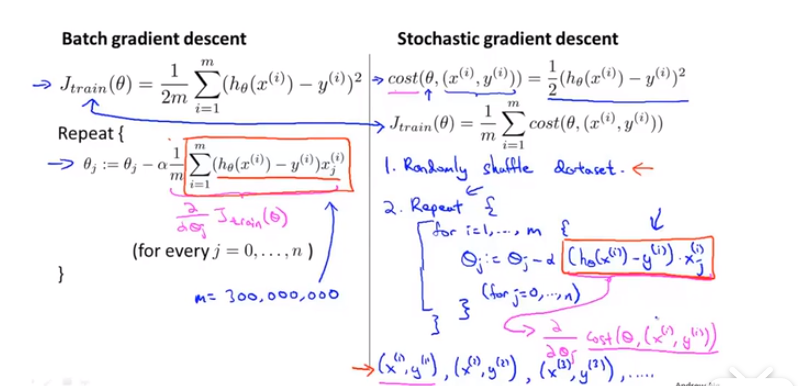 Batch gradient descent
→ J_train(θ) = 1/2m ∑_{i=1}^{m} (h_θ(x^(i)) − y^(i))²
Repeat {
→ θ_j := θ_j − α 1/m ∑_{i=1}^{m} (h_θ(x^(i)) − y^(i)) x_j^(i)
∂/∂θ_j J_train(θ)
(for every j = 0, . . . , n )
}
m = 300,000,000
Stochastic gradient descent
→ cost(θ, (x^(i), y^(i))) = 1/2 (h_θ(x^(i)) − y^(i))²
→ J_train(θ) = 1/m ∑_{i=1}^{m} cost(θ, (x^(i), y^(i)))
1. Randomly shuffle dataset. ←
2. Repeat {
for i=1,..., m {
θ_j := θ_j − α (h_θ(x^(i)) − y^(i)) · x_j^(i)
(for j=0,...,n)
}
}
∂/∂θ_j cost(θ, (x^(i), y^(i)))
→ (x^(1), y^(1)), (x^(2), y^(2)), (x^(3), y^(3)), .....
Andrew